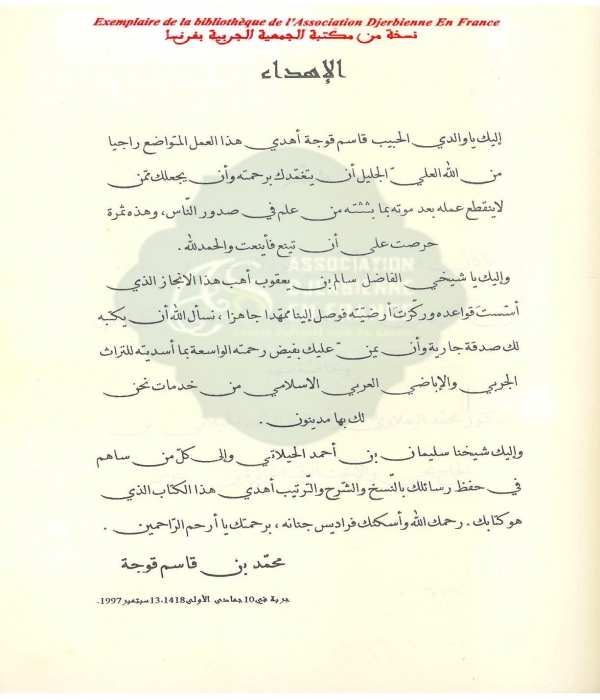 Exemplaire de la bibliothèque de l'Association Djerbienne En France
نسخة من مكتبة الجمعية الجربية بفرنسا
الإهداء
إليك يا والدي الحبيب قاسم قوجة أهدي هذا العمل المتواضع راجيا
من الله العليّ الجليل أن يتغمّدك برحمته وأن يجعلك ممّن
لاينقطع عمله بعد موته بما بثثته من علم في صدور النّاس، وهذه ثمرة
حرصت على أن تينع فأينعت والحمد لله.
وإليك يا شيخي الفاضل سالم بن يعقوب أهب هذا الانجاز الذي
أسّستَ قواعده وركّزتَ أرضيّته فوصل إلينا ممهّدا جاهزا، نسأل الله أن يكتبه
لك صدقة جارية وأن يمنّ عليك بفيض رحمته الواسعة بما أسديته للتراث
الجربي والإباضي العربي الاسلامي من خدمات نحن
لك بها مدينون.
وإليك شيخنا سليمان بن أحمد الحيلاتي وإلى كلّ من ساهم
في حفظ رسائلك بالنّسخ والشرح والتّرتيب أهدي هذا الكتاب الذي
هو كتابك. رحمك الله وأسكنك فراديس جنانه، برحمتك يا أرحم الرّاحمين.
محمّد بن قاسم قوجة
جربة في 10 جمادى الأولى 1418، 13 سبتمبر 1997.
ASSOCIATION
DJERBIENNE